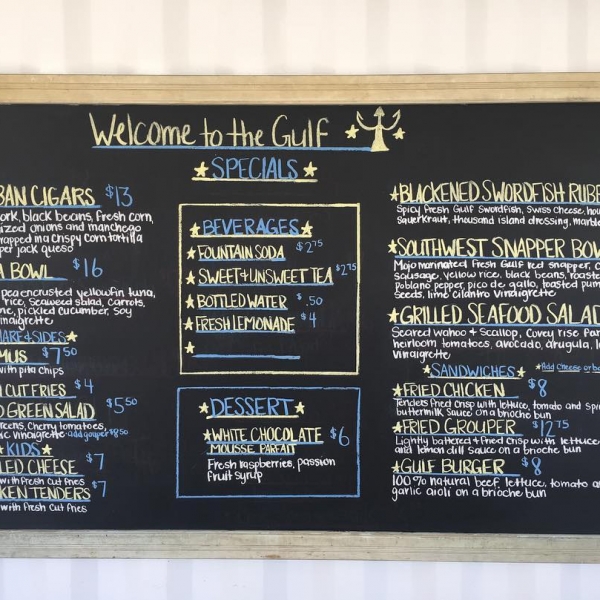 Welcome to the Gulf
SPECIALS
BAN CIGARS $13
ork, black beans, fresh corn,
ized onions and manchego
rapped in a crispy corn tortilla
per jack queso
A BOWL $16
pea encrusted yellowfin tuna,
rice, seaweed salad, carrots,
ne, pickled cucumber, soy
inaigrette
HARE & SIDES
MUS $7.50
with pita chips
CUT FRIES $4
D GREEN SALAD $5.50
reens, cherry tomatoes,
ic vinaigrette · add grouper $8.50
KIDS
LED CHEESE $7
with fresh cut fries
KEN TENDERS $7
with fresh cut fries
BEVERAGES
FOUNTAIN SODA $2.75
SWEET & UNSWEET TEA $2.75
BOTTLED WATER $.50
FRESH LEMONADE $4
DESSERT
WHITE CHOCOLATE $6
MOUSSE PARFAIT
Fresh raspberries, passion
fruit syrup
BLACKENED SWORDFISH RUBE
Spicy fresh Gulf swordfish, Swiss cheese, hou
sauerkraut, thousand island dressing, marble
SOUTHWEST SNAPPER BOW
Mojo marinated fresh Gulf red snapper, c
sausage, yellow rice, black beans, roaste
poblano pepper, pico de gallo, toasted pum
seeds, lime cilantro vinaigrette
GRILLED SEAFOOD SALAD
Seared wahoo & scallop, Covey rise far
heirloom tomatoes, avocado, arugula, l
vinaigrette
SANDWICHES *Add cheese or ba
FRIED CHICKEN $8
Tenders fried crisp with lettuce, tomato and spi
buttermilk sauce on a brioche bun
FRIED GROUPER $12.75
Lightly battered & fried crisp with lettuce
and lemon dill sauce on a brioche bun
GULF BURGER $8
100% natural beef, lettuce, tomato a
garlic aioli on a brioche bun